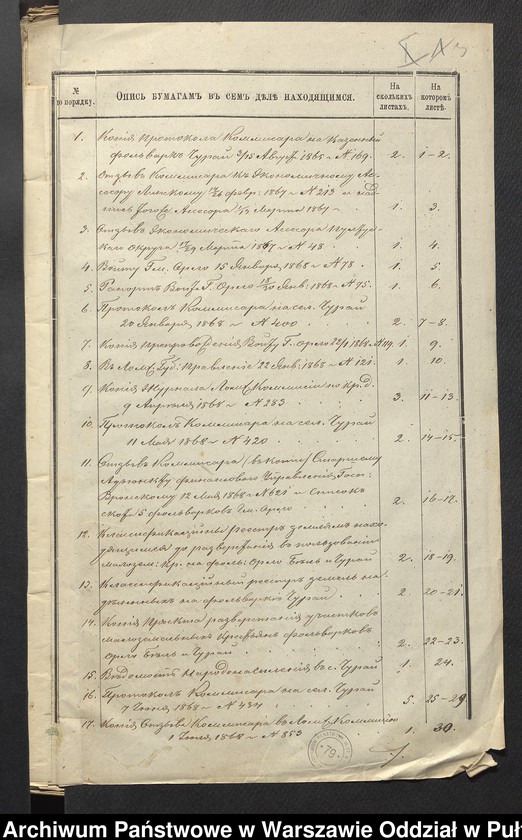 №
по порядку.
Опись бумагамъ въ семъ дѣлѣ находящимся.
На
сколькихъ
листахъ.
На
которомъ
листѣ.
1. Копія Протокола Коммисара на Казенный
фольваркъ Чурай 3/15 Август 1865 г. № 169. 2. 1-2.
2. Отзывъ Коммисара Экономичному Ас-
сесору февр: 1867 г. № 213
Ассесора Марта 1867 г. 1. 3.
3. Отзывъ Экономическаго Ассесора
Округа Марта 1867 г. № 48 1. 4.
4. Войту Гм. Орло 15 Января 1868 г. № 78. 1. 5.
5. Рапортъ Войта Г. Орло 18/30 Янв. 1868 г. № 75. 1. 6.
6. Протоколъ Коммисара на сел. Чурай
20 Января 1868 г. № 400 2. 7-8.
7. Копія Войту Г. Орло 22/1 1868 г. № 119. 1. 9.
8. Въ Лом: Губ: Правленіе 22 Янв: 1868 г. № 121. 1. 10.
9. Копія Журнала Лом: Коммисіи по кр. д.
9 Апрѣля 1868 г. № 283 3. 11-13.
10. Протоколъ Коммисара на сел. Чурай
11 Мая 1868 г. № 420 2. 14-15.
11. Отзывъ Коммисара (въ копіи) Старшему
финансоваго Управленія
12 Мая 1868 г. № 621 и Списокъ
5 фольварковъ Гм. Орло 2. 16-17.
12. Классификаціонный реестръ землямъ нахо-
дящимся до разверстанія въ пользованіи
малозем: кр. на фольв: Орло и Чурай 2. 18-19.
13. Классификаціонный реестръ земель на-
дѣленныхъ на фольваркѣ Чурай 2. 20-21.
14. Копія Проэкта разверстанія участковъ
малоземельныхъ крестьянъ фольварковъ
Орло и Чурай 2. 22-23.
15. Вѣдомость Народонаселенія въ с. Чурай 1. 24.
16. Протоколъ Коммисара на сел. Чурай
7 Іюня 1868 г. № 434 5. 25-29
17. Копія Отзыва Коммисара въ Лом: Коммисію
1 Іюля 1868 г. № 853 1. 30.
79
Archiwum Państwowe w Warszawie Oddział w Puł